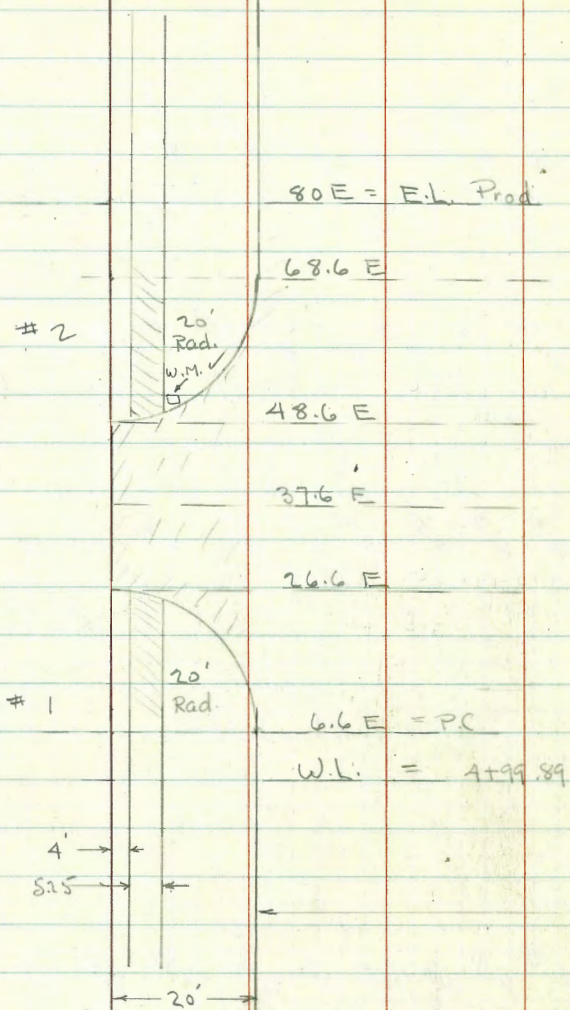 80 E = E.L. Prod
68.6 E
# 2
20'
Rad.
W.M.
48.6 E
37.6 E
26.6 E
# 1
20'
Rad.
6.6 E = P.C
W.L. = 4+99.89
4'
5.25
20'